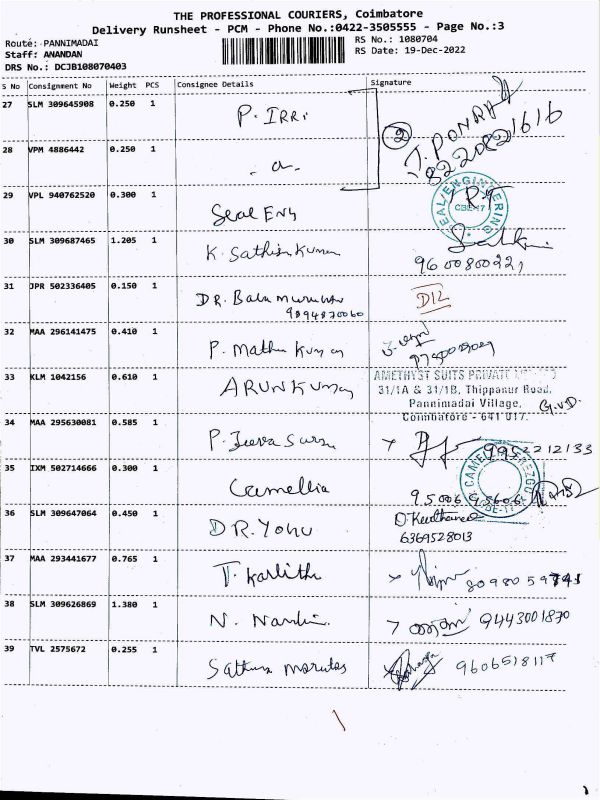 THE PROFESSIONAL COURIERS, Coimbatore
Delivery Runsheet - PCM - Phone No.:0422-3505555 - Page No.:3
Route: PANNIMADAI RS No.: 1080704
Staff: ANANDAN RS Date: 19-Dec-2022
DRS No.: DCJB108070403
S No Consignment No Weight PCS Consignee Details Signature
27 SLM 309645908 0.250 1 P. IRRi
2 J. PONRAJ
8220821616
28 VPM 4886442 0.250 1 - a -
29 VPL 940762520 0.300 1 Seal ENG
SEAL ENGINEERING
CBE-17
30 SLM 309687465 1.205 1 K. Sathish Kumar
9600800221
31 JPR 502336405 0.150 1 DR. Bala Murugan DIL
9894870060
32 MAA 296141475 0.410 1 P. Mathu Kumar
33 KLM 1042156 0.610 1 ARUN Kumar
AMETHYST SUITS PRIVATE LIMITED
31/1A & 31/1B, Thippanur Road,
Pannimadai Village,
Coimbatore - 641 017. G.V.D.
34 MAA 295630081 0.585 1 P. Jeeva Surya 9952212133
35 IXM 502714666 0.300 1 Camellia
36 SLM 309647064 0.450 1 DR. YOHU
6369528013
37 MAA 293441677 0.765 1 T. Karlithe 8098059741
38 SLM 309626869 1.380 1 N. Nandini 9443001870
39 TVL 2575672 0.255 1 Sathya Marutas 9606518117